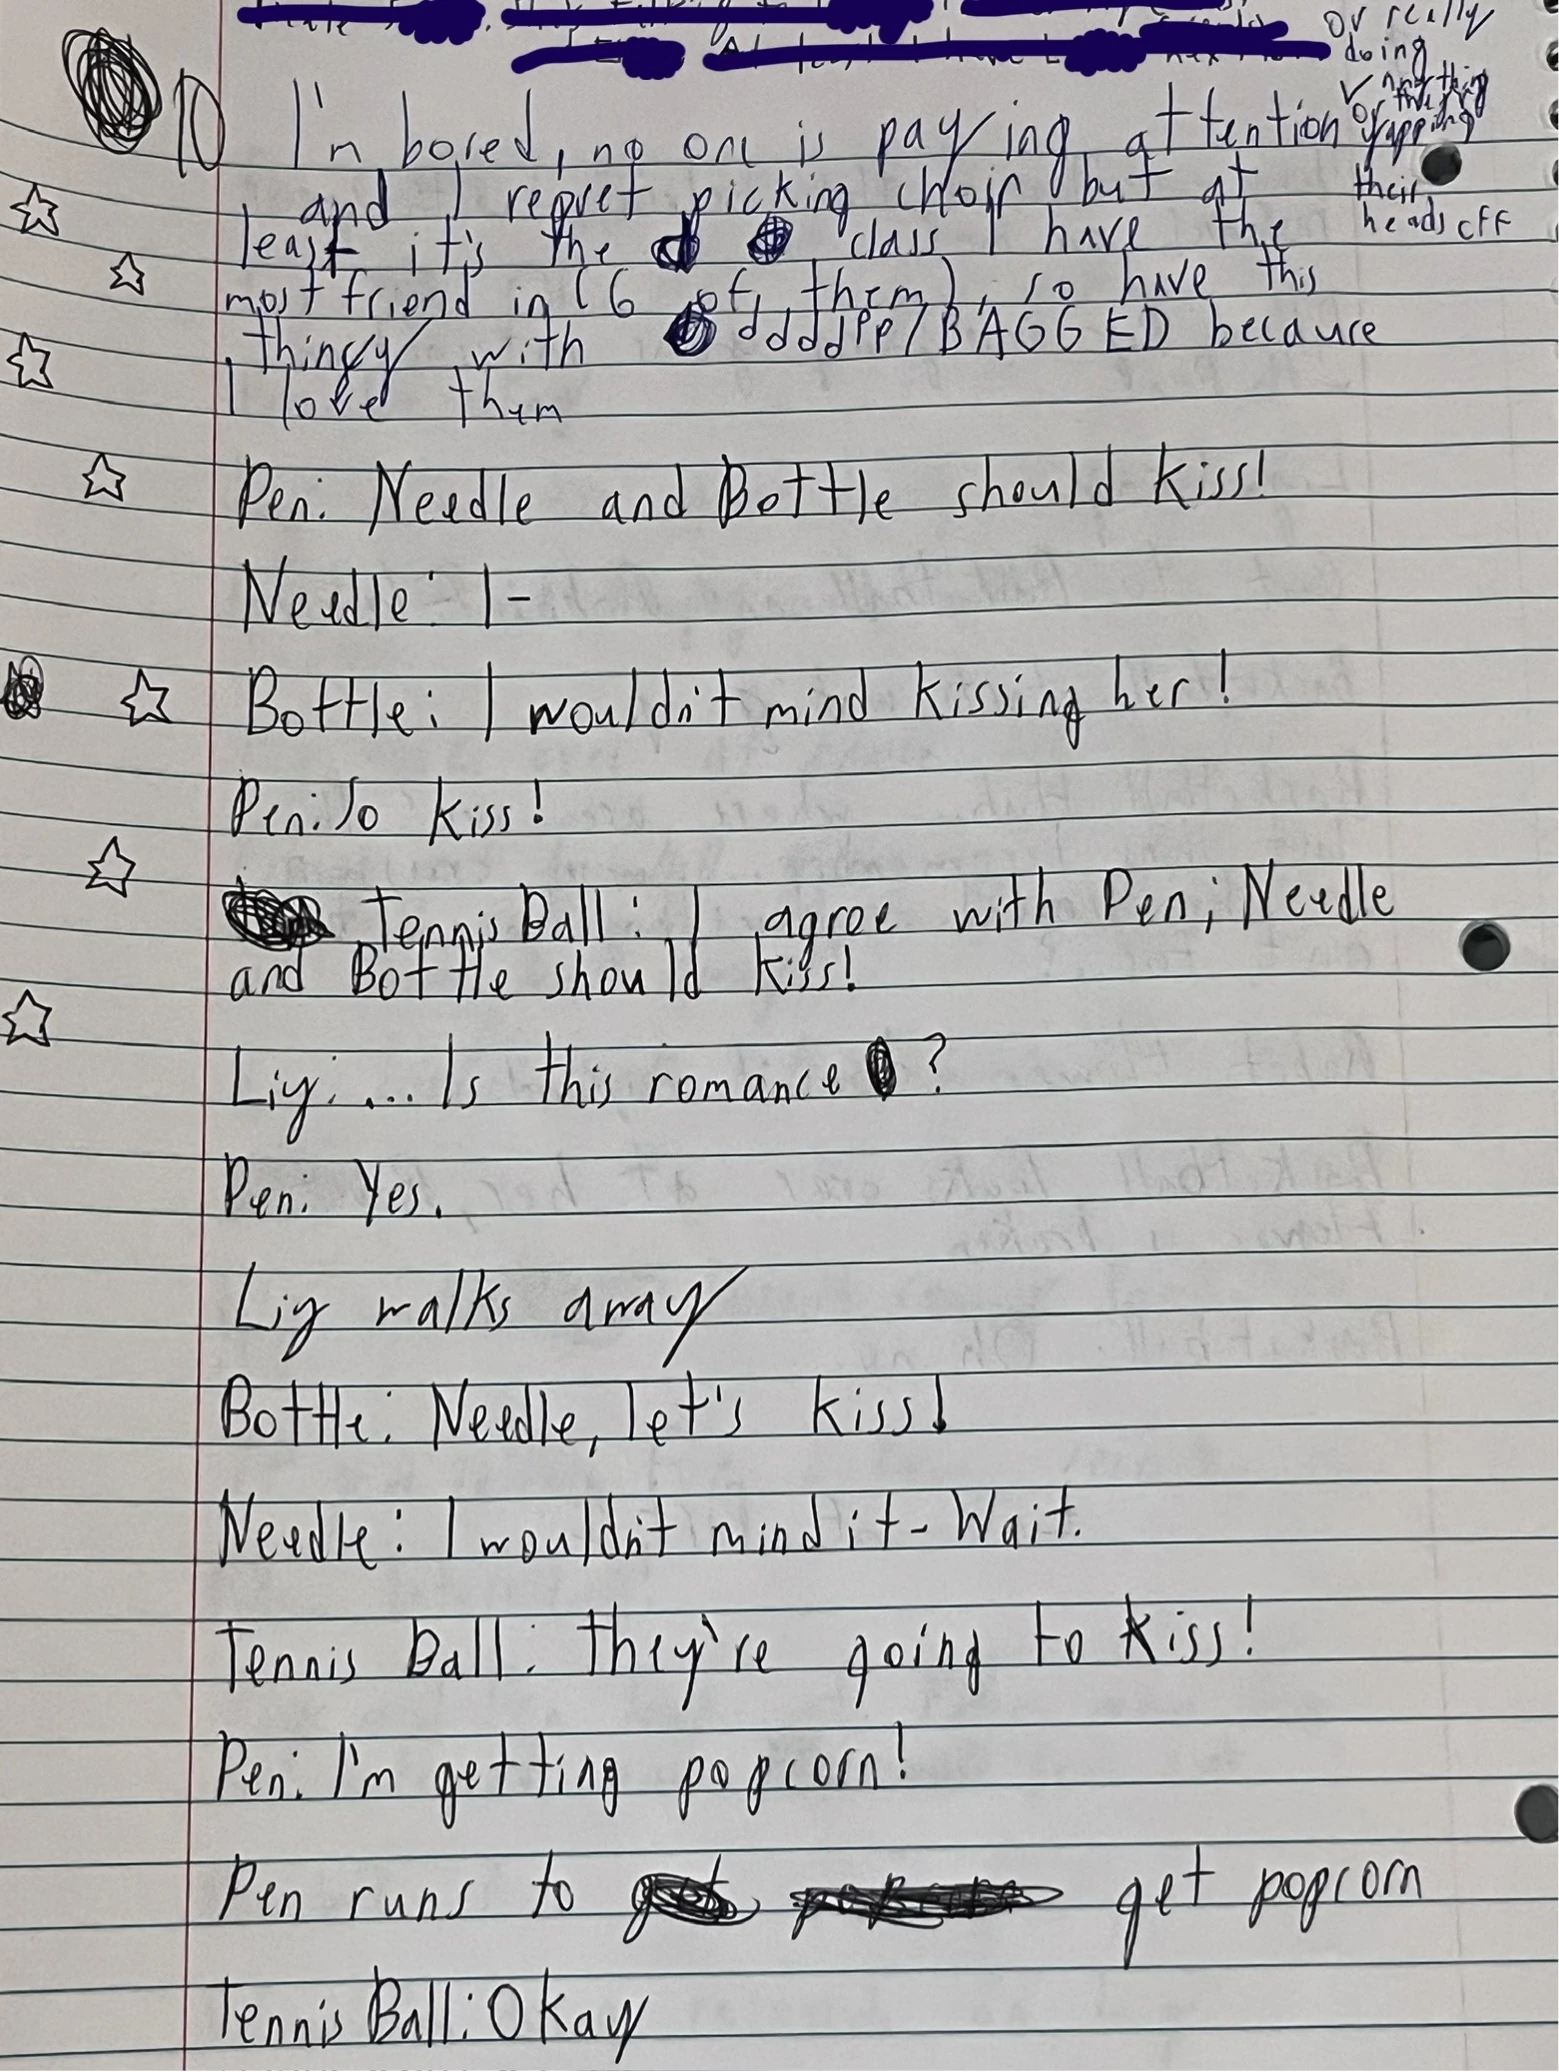 or really
doing
✓ anything
10 I'm bored, no one is paying attention or they're yapping
and I regret picking choir but at their
least it's the class I have the heads off
most friend in (6 of them), so have this
thingy with ddddPP/BAGGED because
I love them
Pen: Needle and Bottle should kiss!
Needle: I-
Bottle: I wouldn't mind kissing her!
Pen: So kiss!
Tennis Ball: I agree with Pen; Needle
and Bottle should kiss!
Liy: ... Is this romance ?
Pen: Yes.
Liy walks away
Bottle: Needle, let's kiss!
Needle: I wouldn't mind it- Wait.
Tennis Ball: they're going to kiss!
Pen: I'm getting popcorn!
Pen runs to get popcorn
Tennis Ball: Okay